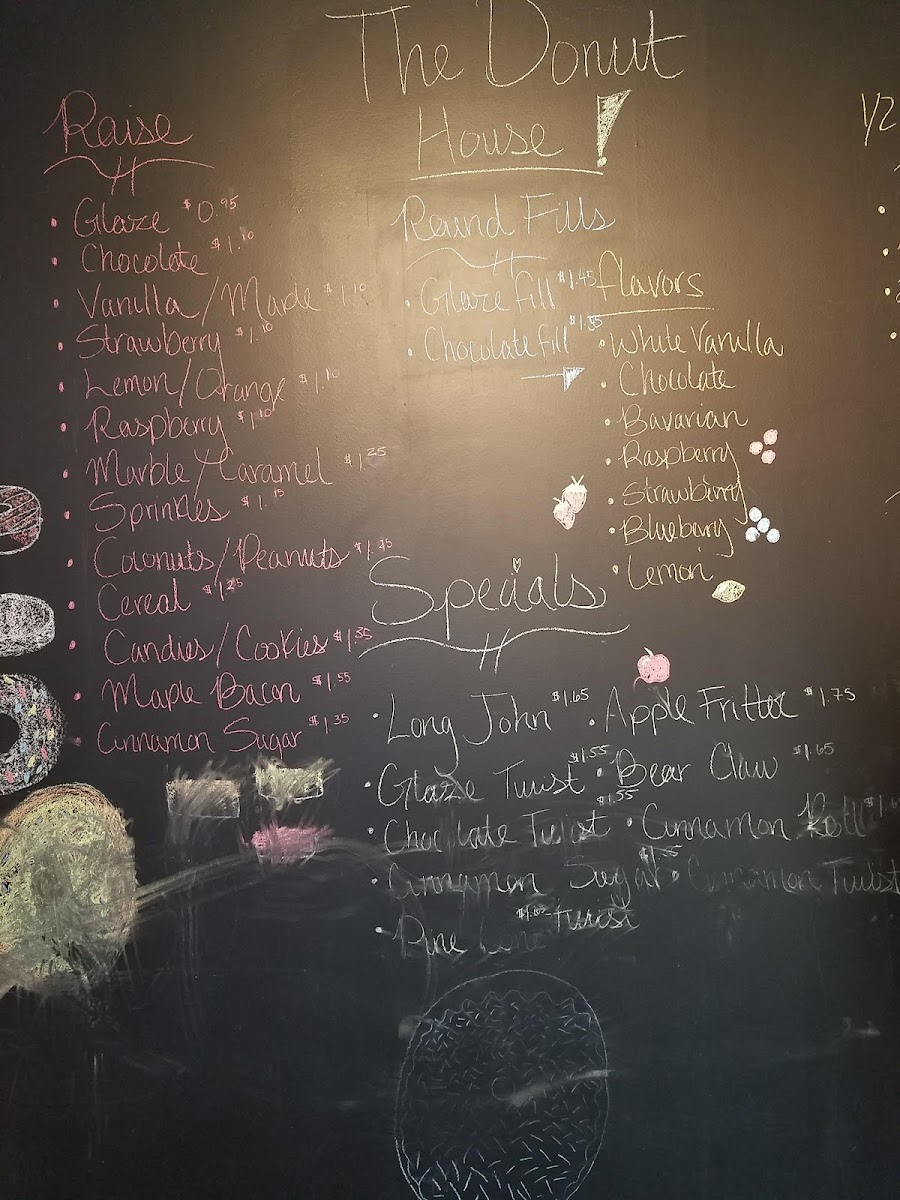 The Donut
House !
Raise
• Glaze $0.95
• Chocolate $1.10
• Vanilla/Maple $1.10
• Strawberry $1.10
• Lemon/Orange $1.10
• Raspberry $1.10
• Marble/Caramel $1.25
• Sprinkles $1.15
• Coconuts/Peanuts
• Cereal $1.25
• Candies/Cookies $1.35
• Maple Bacon $1.55
• Cinnamon Sugar $1.35
Round Fills
• Glaze fill $1.45
• Chocolate fill
Flavors
• White Vanilla
• Chocolate
• Bavarian
• Raspberry
• Strawbirry
• Blueberry
• Lemon
Specials
• Long John $1.65
• Glaze Twist $1.55
• Chocolate Twist $1.55
• Cinnamon Sugar
Twist
• Pine $1.65
• Apple Fritter $1.75
• Bear Claw $1.65
• Cinnamon Roll
• Cinnamon Twist
1/2